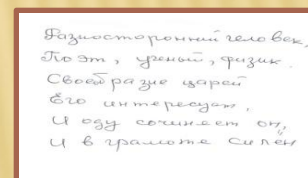 Разносторонний человек,
Поэт, ученый, физик.
Своеобразие царей
Его интересует,
И оду сочиняет он,
И в грамоте силён